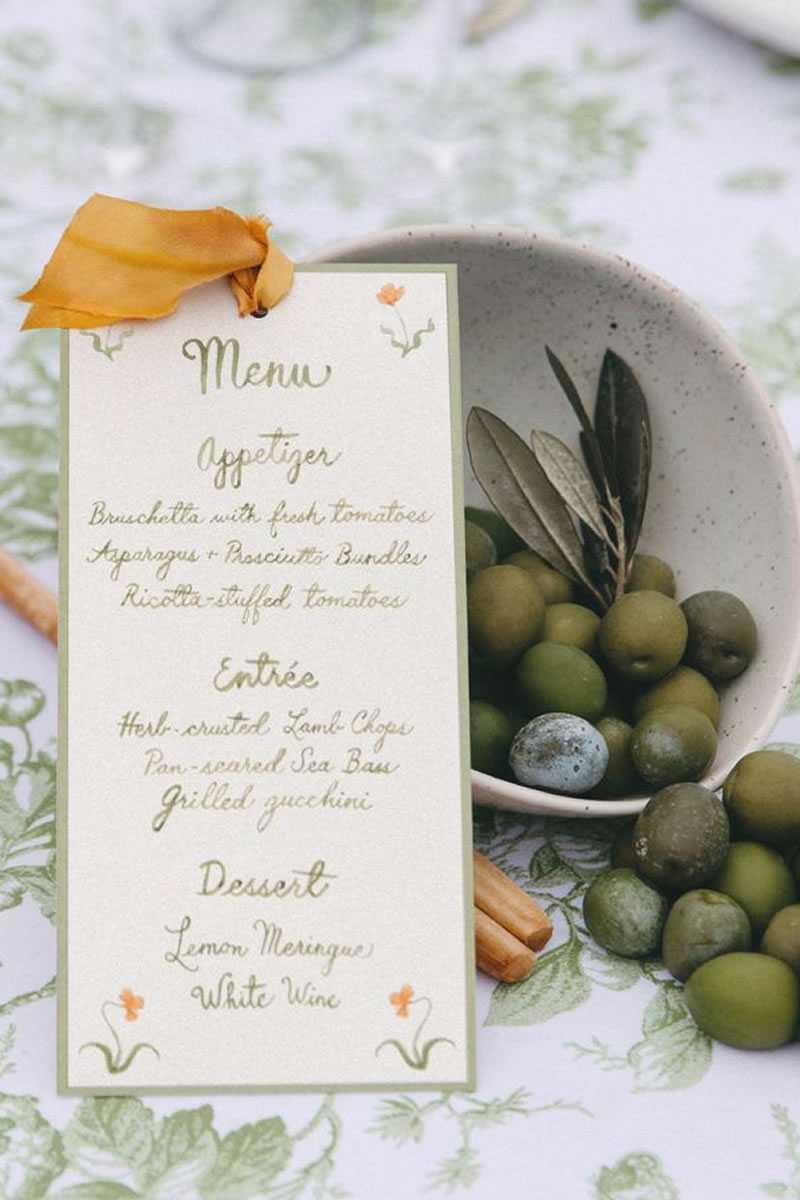 Menu
Appetizer
Bruschetta with fresh tomatoes
Asparagus + Prosciutto Bundles
Ricotta-stuffed tomatoes
Entrée
Herb-crusted Lamb Chops
Pan-seared Sea Bass
Grilled zucchini
Dessert
Lemon Meringue
White Wine